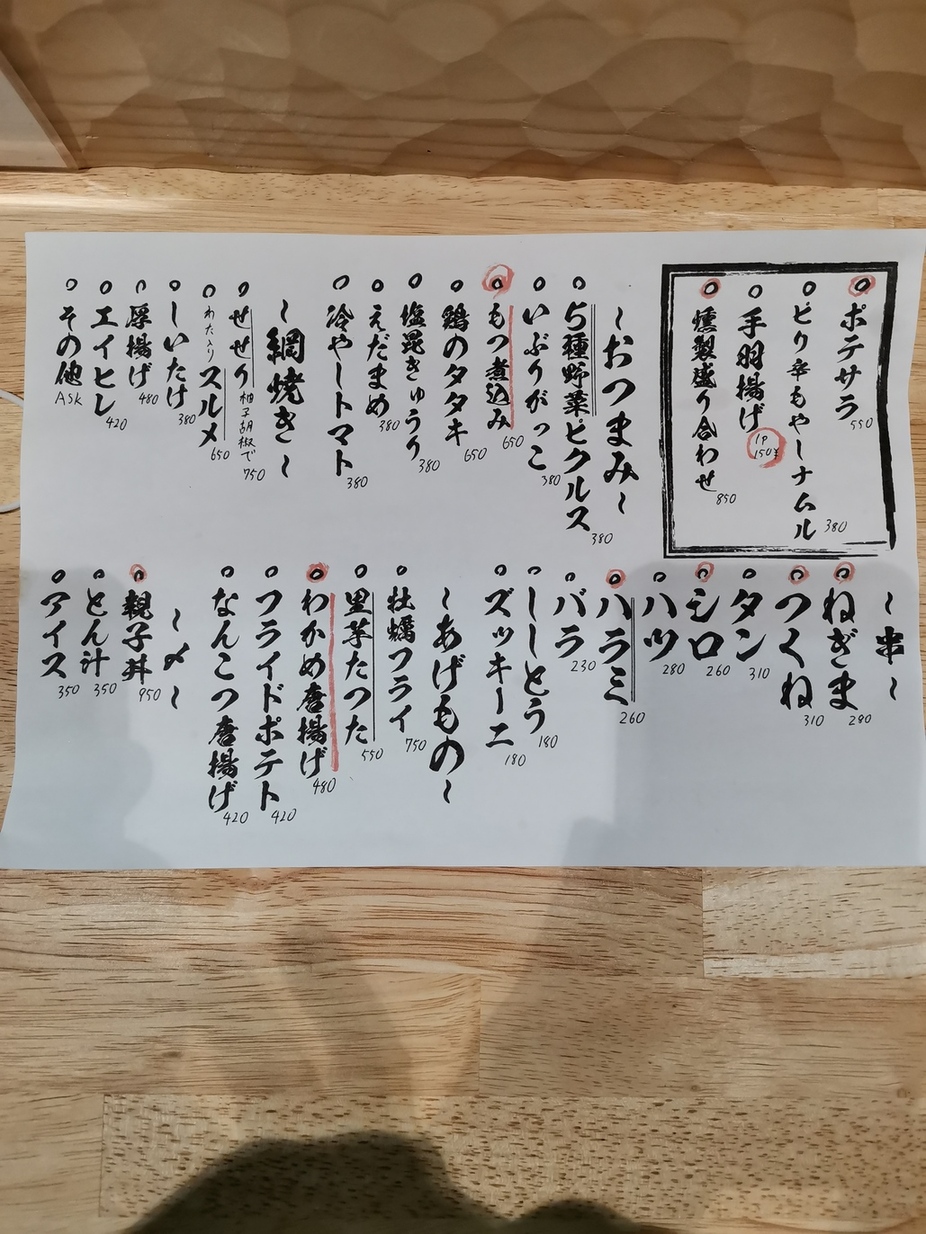 ポテサラ 550
ピリ辛もやしナムル 380
手羽揚げ 1P 150¥
燻製盛り合わせ 850
～おつまみ～
5種野菜ピクルス 380
いぶりがっこ 380
もつ煮込み 650
鶏のタタキ 650
塩昆きゅうり 380
えだまめ 380
冷やしトマト 380
～網焼き～
せせり 柚子胡椒で 750
わた入りスルメ 650
しいたけ 380
厚揚げ 480
エイヒレ 420
その他 ASK
～串～
ねぎま 290
つくね 310
タン 310
シロ 260
ハツ 280
ハラミ 260
バラ 230
ししとう 180
ズッキーニ 180
～あげもの～
牡蠣フライ 750
里芋たつた 550
わかめ唐揚げ 480
フライドポテト 420
なんこつ唐揚げ 420
～〆～
親子丼 950
とん汁 350
アイス 350